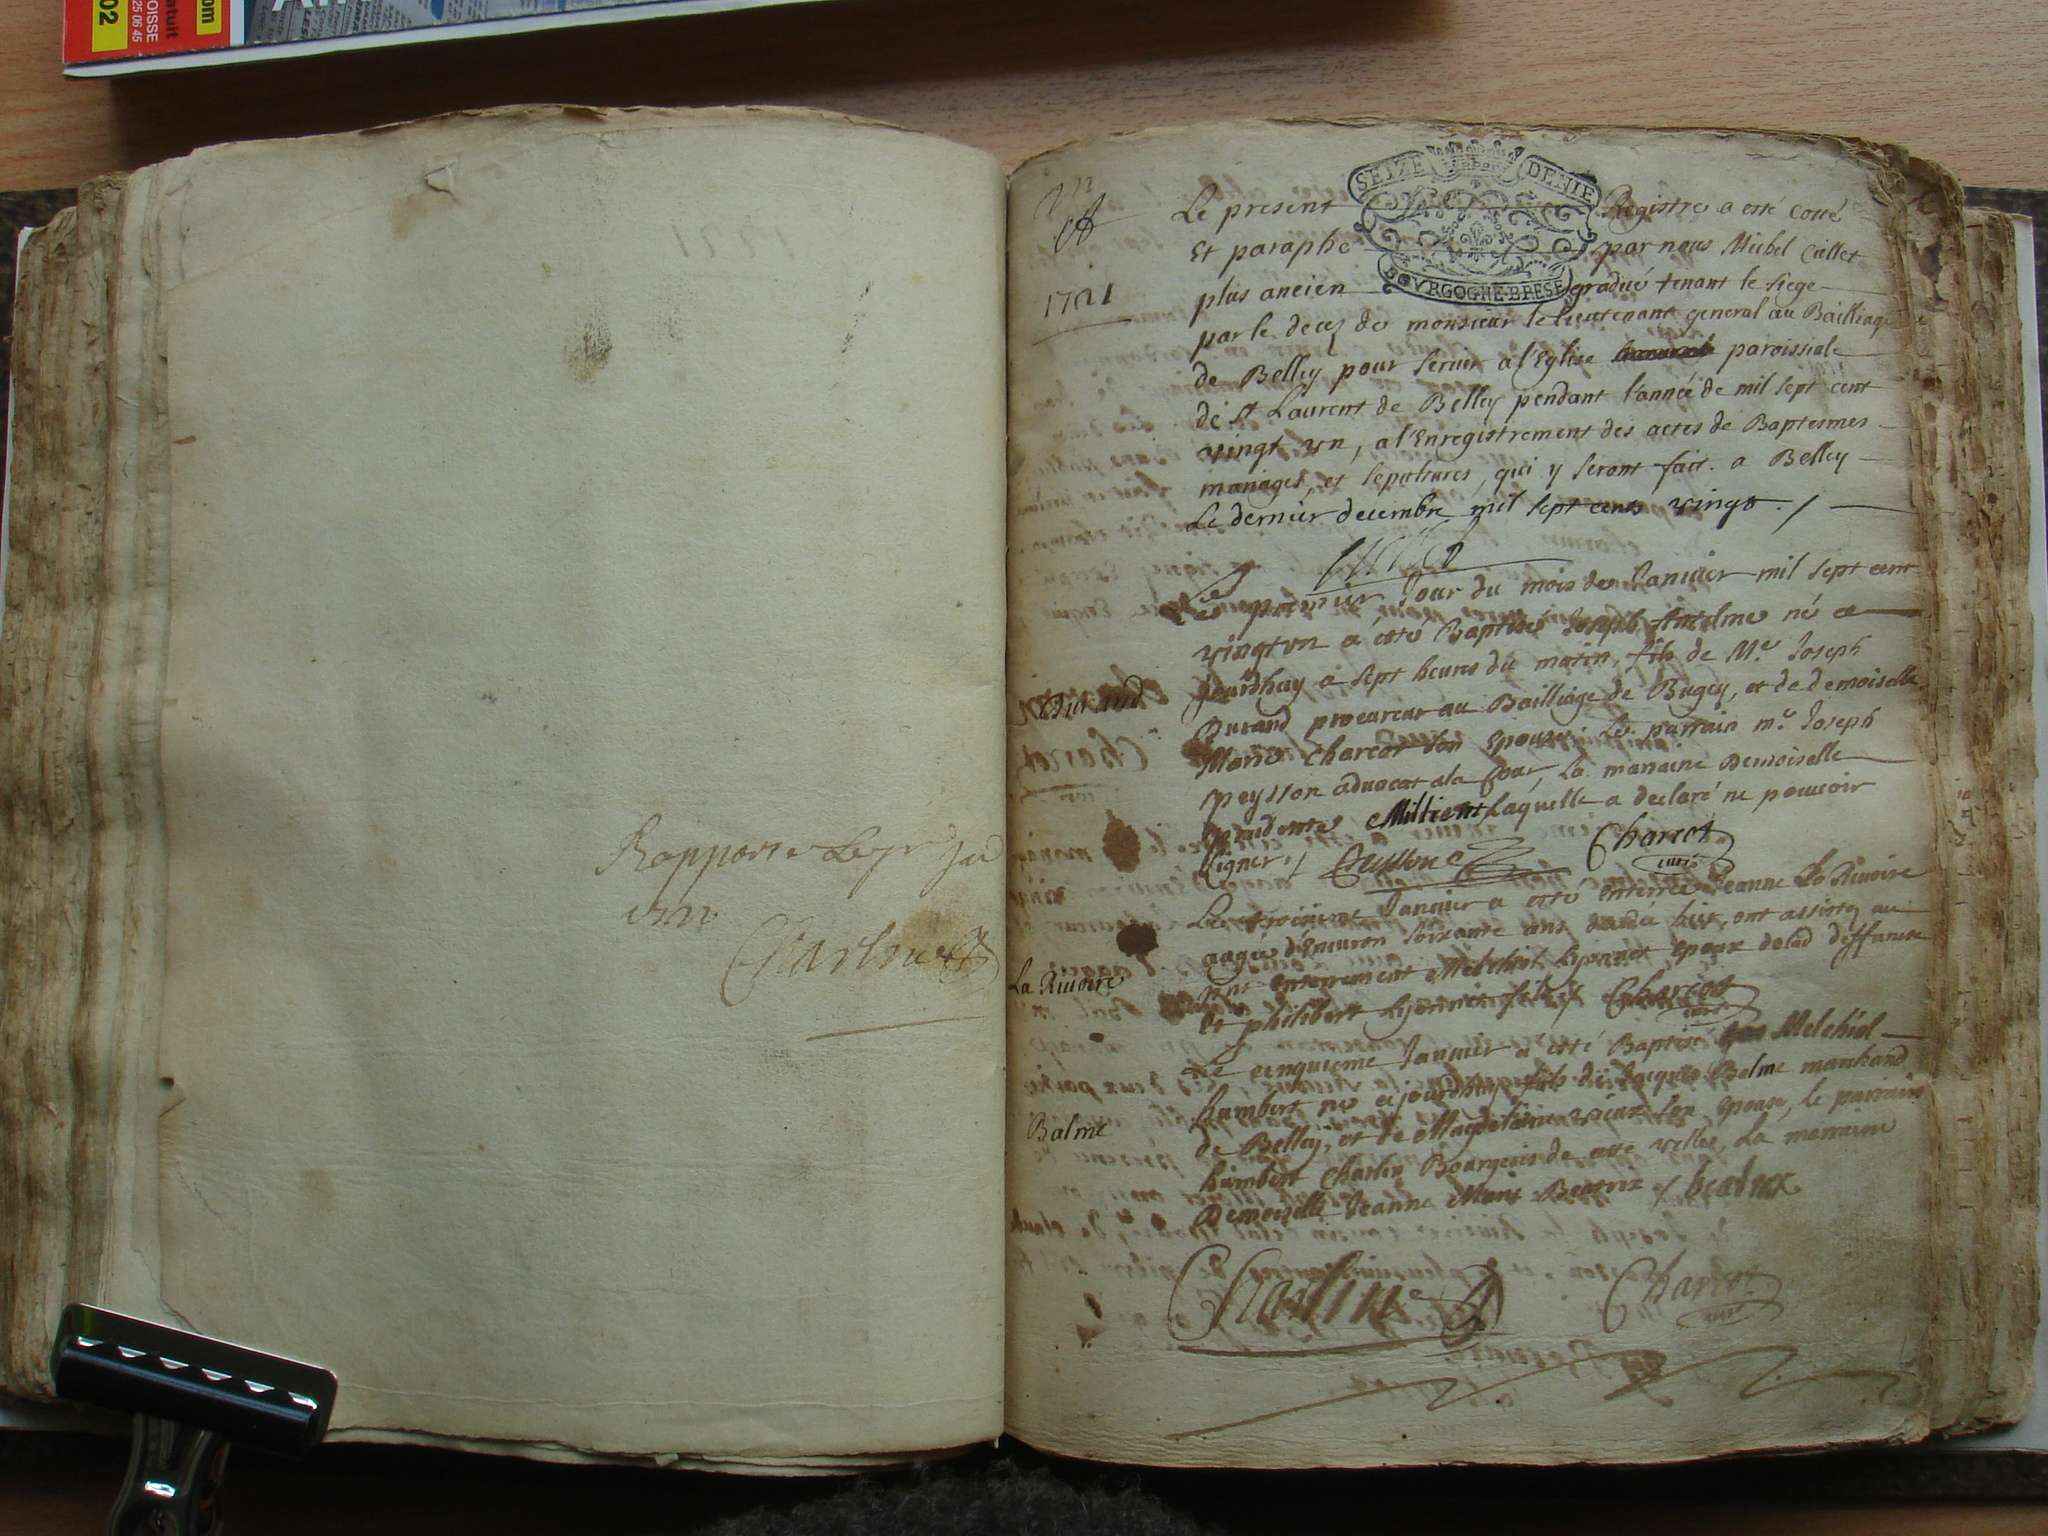 02
25 06 45
OISSE
ratuit
om
Rapporté Le
Charlin
1721
SEIZE DENIE
BOVRGOGNE·BRESE
Le present Registre a esté cotté
Et paraphe par nous Michel Caillet
plus ancien gradué tenant le siege
par le decez de monsieur le lieutenant general au Bailliage
de Belley pour servir a l'Eglise paroissiale
de st Laurent de Belley pendant l'année de mil sept cent
vingt vn, a l'Enregistrement des actes de Baptesmes
mariages, et sepultures, qui y seront fait. a Belley
Le dernier decembre mil sept cents vingt ./
Durand
Le premier Jour du mois de Janvier mil sept cent
vingt vn a été Baptisé Joseph Antelme né ce
jourdhuy a sept heures du matin, fils de Me. Joseph
Durand procureur au Bailliage de Bugey, et de demoiselle
Marie Charcot son epouse, Le parrain mr. Joseph
peysson advocat a la Cour, La marraine Demoiselle
prudente Millient Laquelle a declaré ne pouvoir
signer /
Charcot
curé
La Rivoire
Le troisieme Janvier a esté enterrée Jeanne La Rivoire
aagée d'Environ soixante ans decedée hier, ont assistez au
Enterrement Melchiol Lyonnet epoux de lad deffunte
et philibert Lyonnet fils /
Charcot
curé
Balme
Le cinquieme Janvier a esté Baptisé Melchiol
humbert né ce jourdhuy fils de Jacques Balme marchand
de Belley, et de Magdelaine son epouse, le parrain
humbert Charlin Bourgeois de cette ville, La marraine
Demoiselle Jeanne Marie Beatrix /
Charlin
Charcot
curé